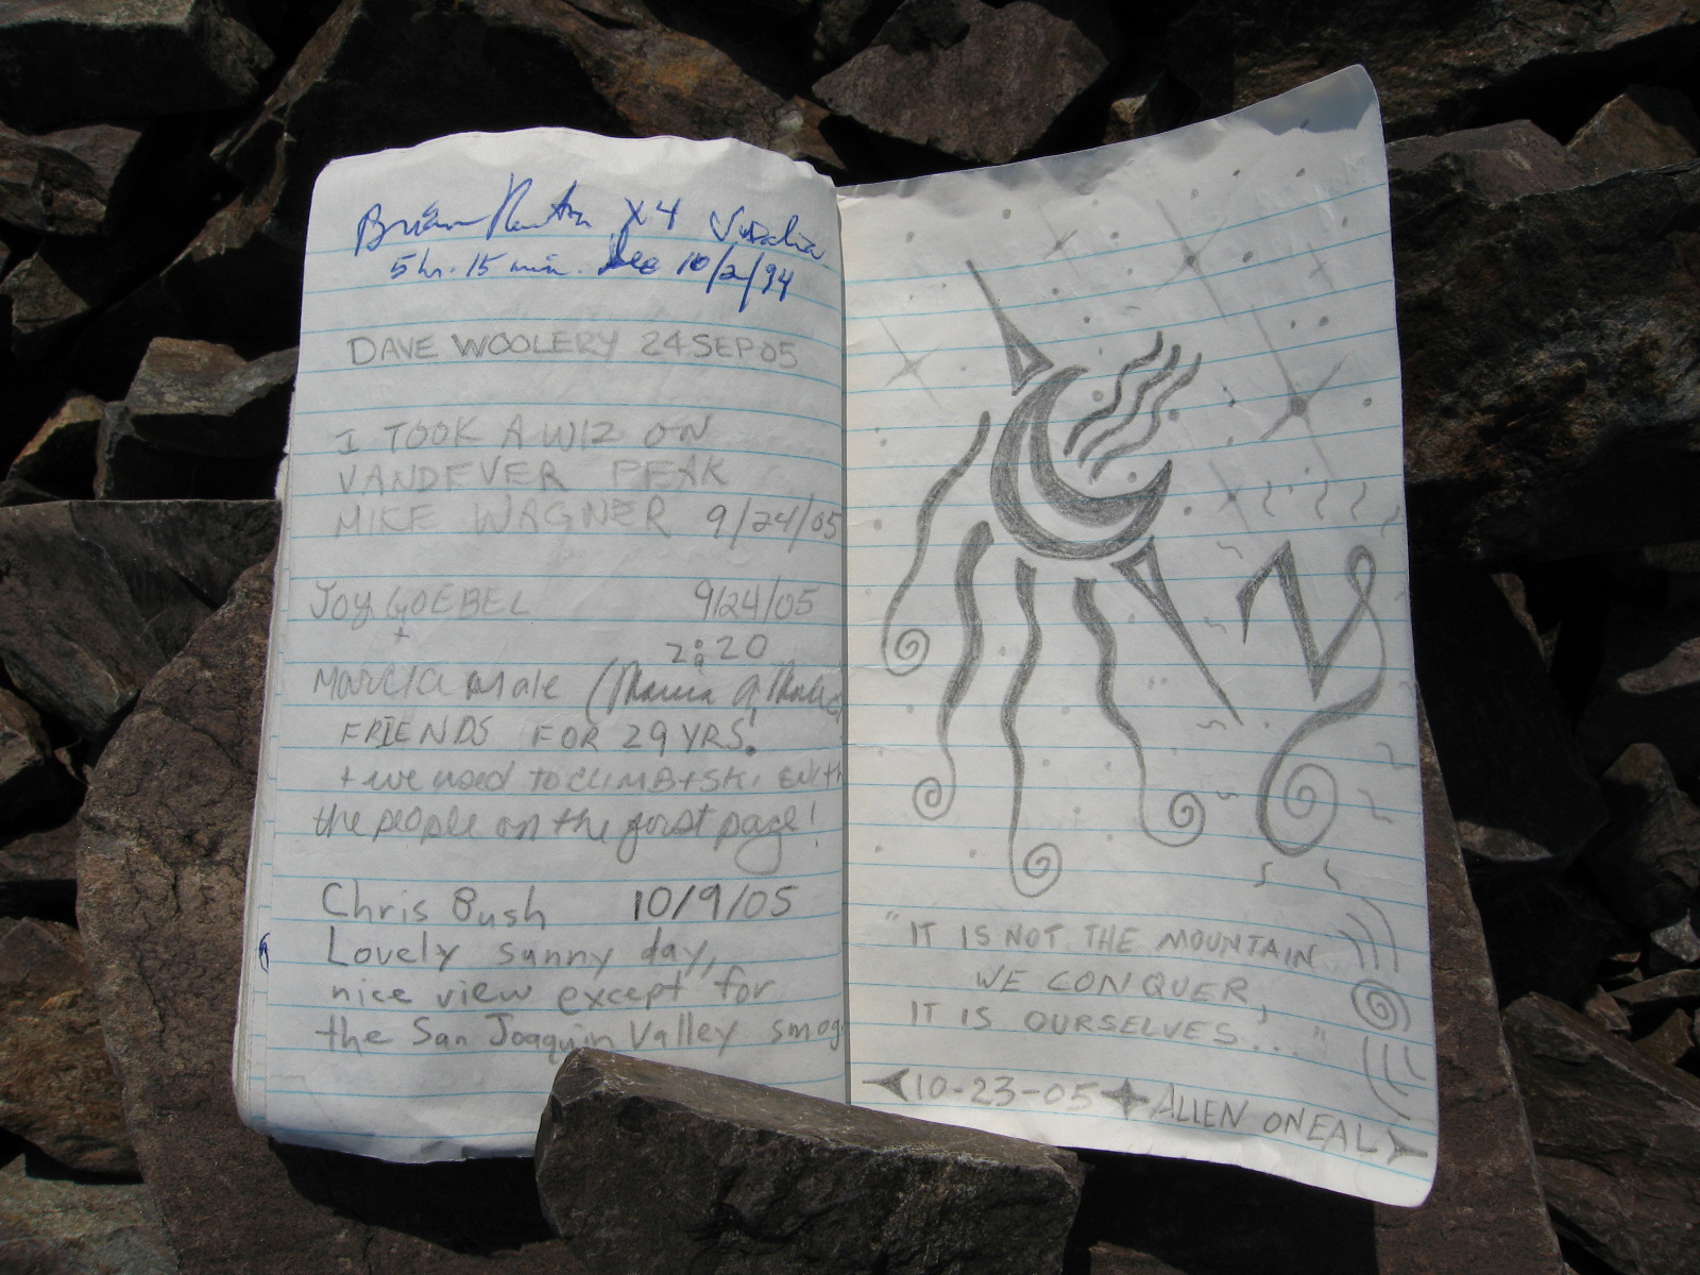 Brian X4 Visalia
5 hr. 15 min. 10/2/94
DAVE WOOLERY 24 SEP 05
I TOOK A WIZ ON
VANDEVER PEAK
MIKE WAGNER 9/24/05
JOY GOEBEL 9/24/05
+ 2:20
MARCIA Male (Marcia
FRIENDS FOR 29 YRS!
+ we used TO CLIMB + SKI with
the people on the first page!
Chris Bush 10/9/05
Lovely sunny day,
nice view except for
the San Joaquin Valley smog
"IT IS NOT THE MOUNTAIN
WE CONQUER,
IT IS OURSELVES...."
10-23-05 ALLEN ONEAL